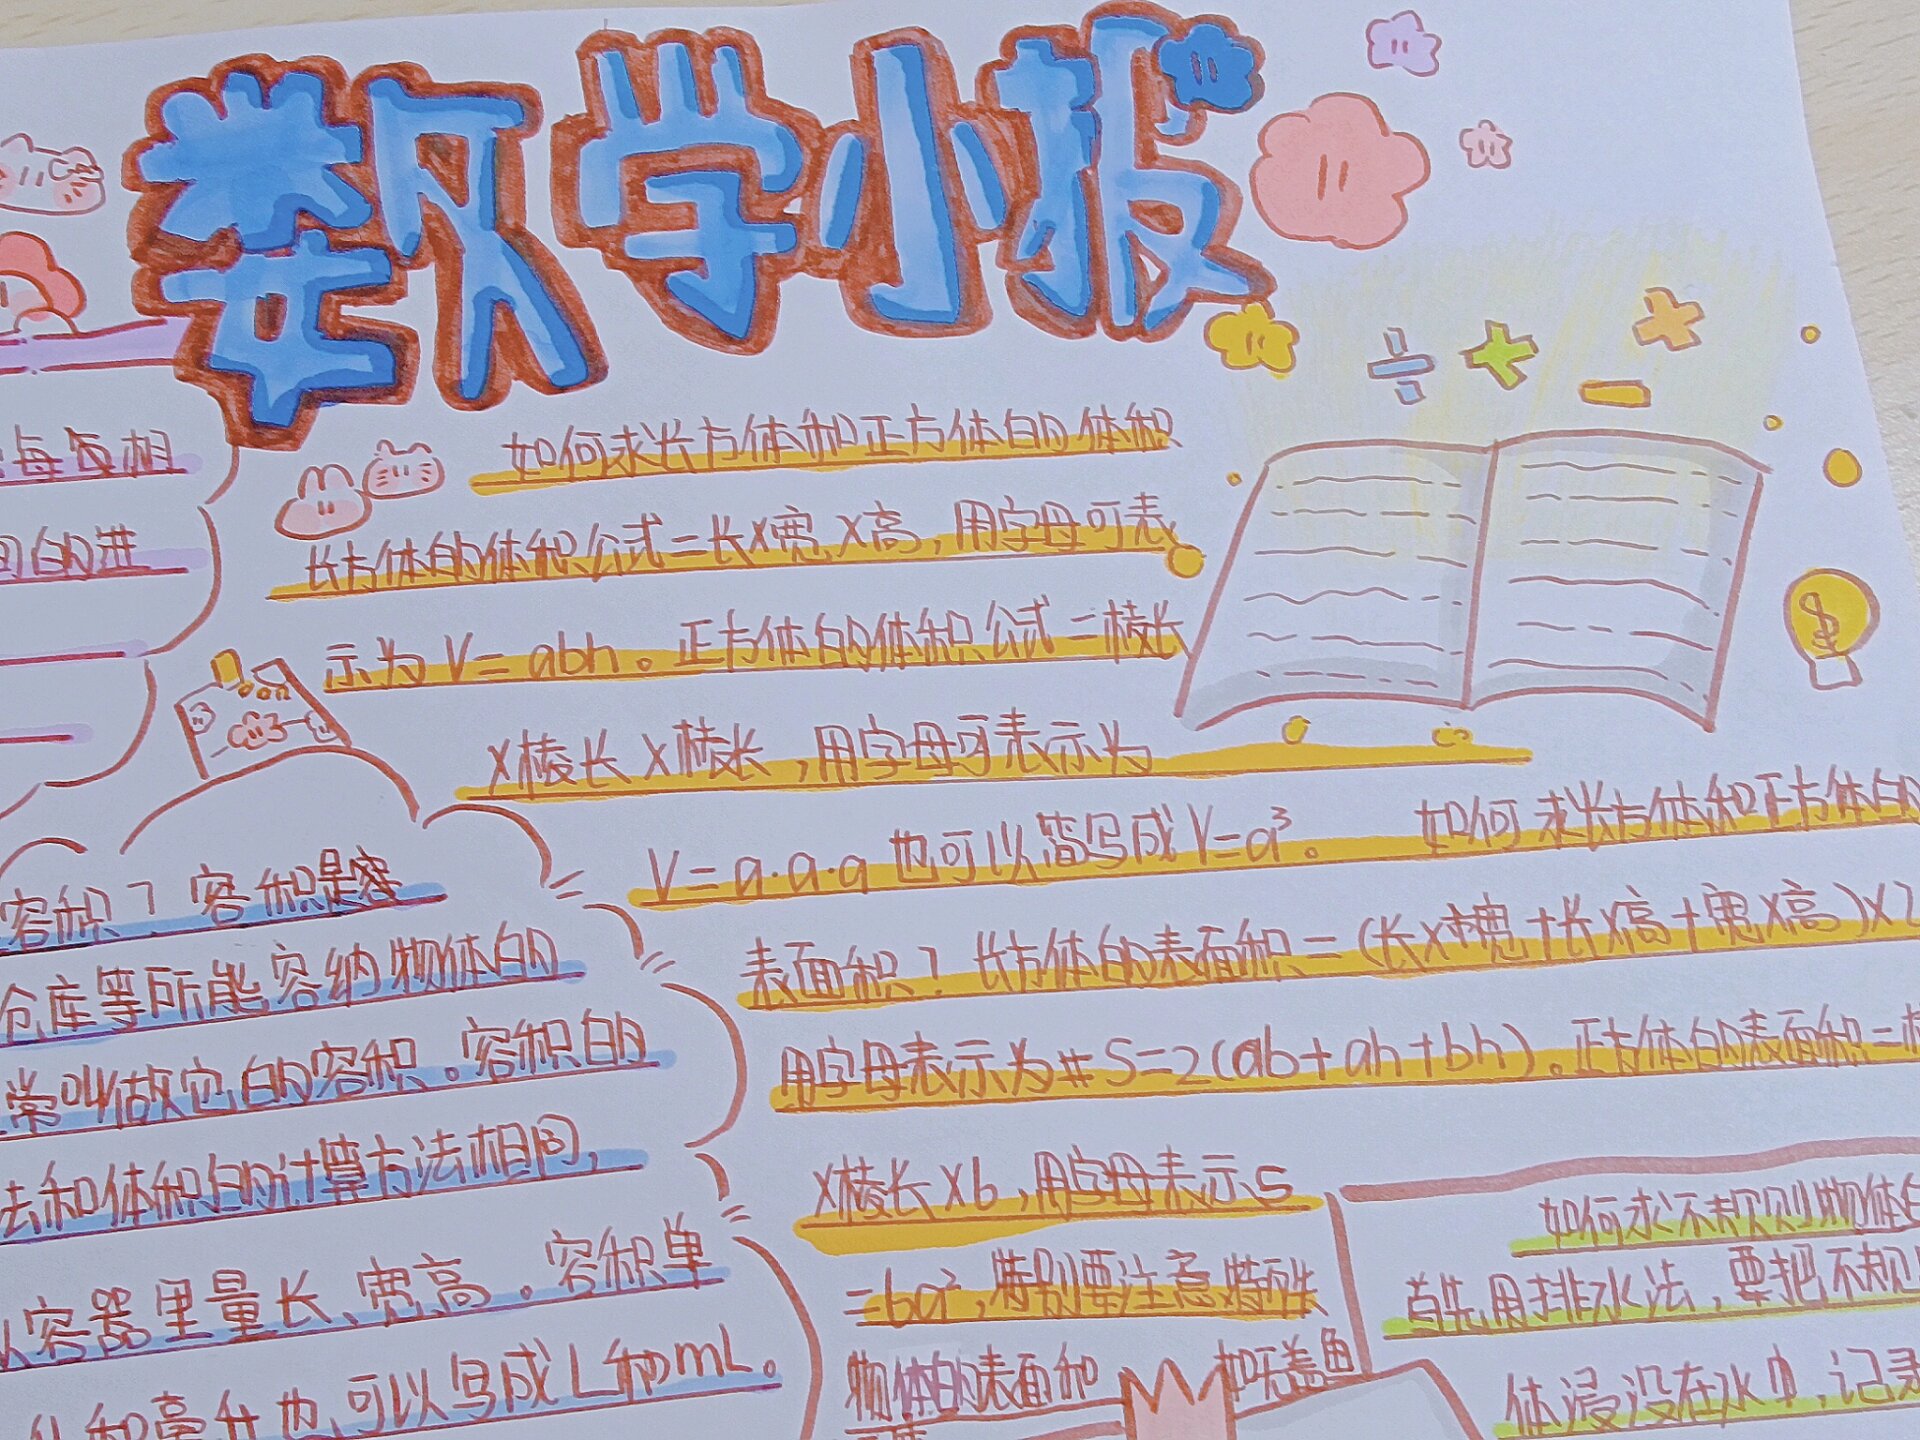 数学小报
每每相
间的进
如何求长方体和正方体的体积
长方体的体积公式=长×宽×高,用字母可表
示为V=abh。正方体的体积公式=棱长
×棱长×棱长,用字母可表示为
V=a·a·a也可以简写成V=a³。 如何求长方体和正方体的
表面积?长方体的表面积=(长×宽+长×高+宽×高)×2
用字母表示为 S=2(ab+ah+bh)。正方体的表面积=棱
×棱长×6,用字母表示S
=6a²,特别要注意特殊
物体的表面积 如无盖鱼
容积?容积是容
仓库等所能容纳物体的
常叫做它的容积。容积的
法和体积的计算方法相同,
从容器里量长、宽、高。容积单
升和毫升也可以写成L和mL。
如何求不规则物体
首先用排水法,要把不规
体浸没在水中,记录